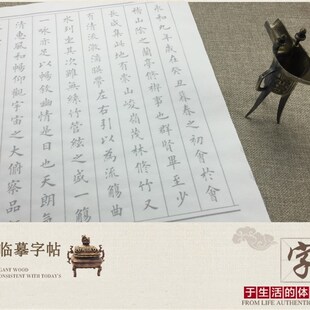 永和九年歲在癸丑暮春之初會於會
稽山陰之蘭亭修禊事也群賢畢至少
長咸集此地有崇山峻嶺茂林修竹又
有清流激湍映帶左右引以為流觴曲
水列坐其次雖無絲竹管絃之盛一觴
一詠亦足以暢敘幽情是日也天朗氣
清惠風和暢仰觀宇宙之大俯察品
临摹字帖
GANT WOOD
ONSISTENT WITH TODAY'S
字
于生活的体
FROM LIFE AUTHENTIC